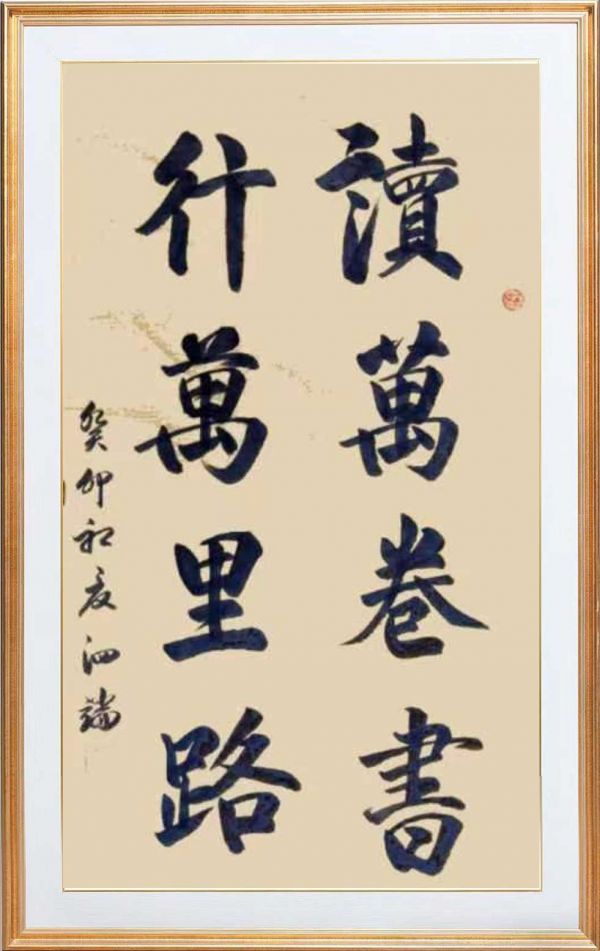 讀萬卷書
行萬里路
癸卯初夏泗端